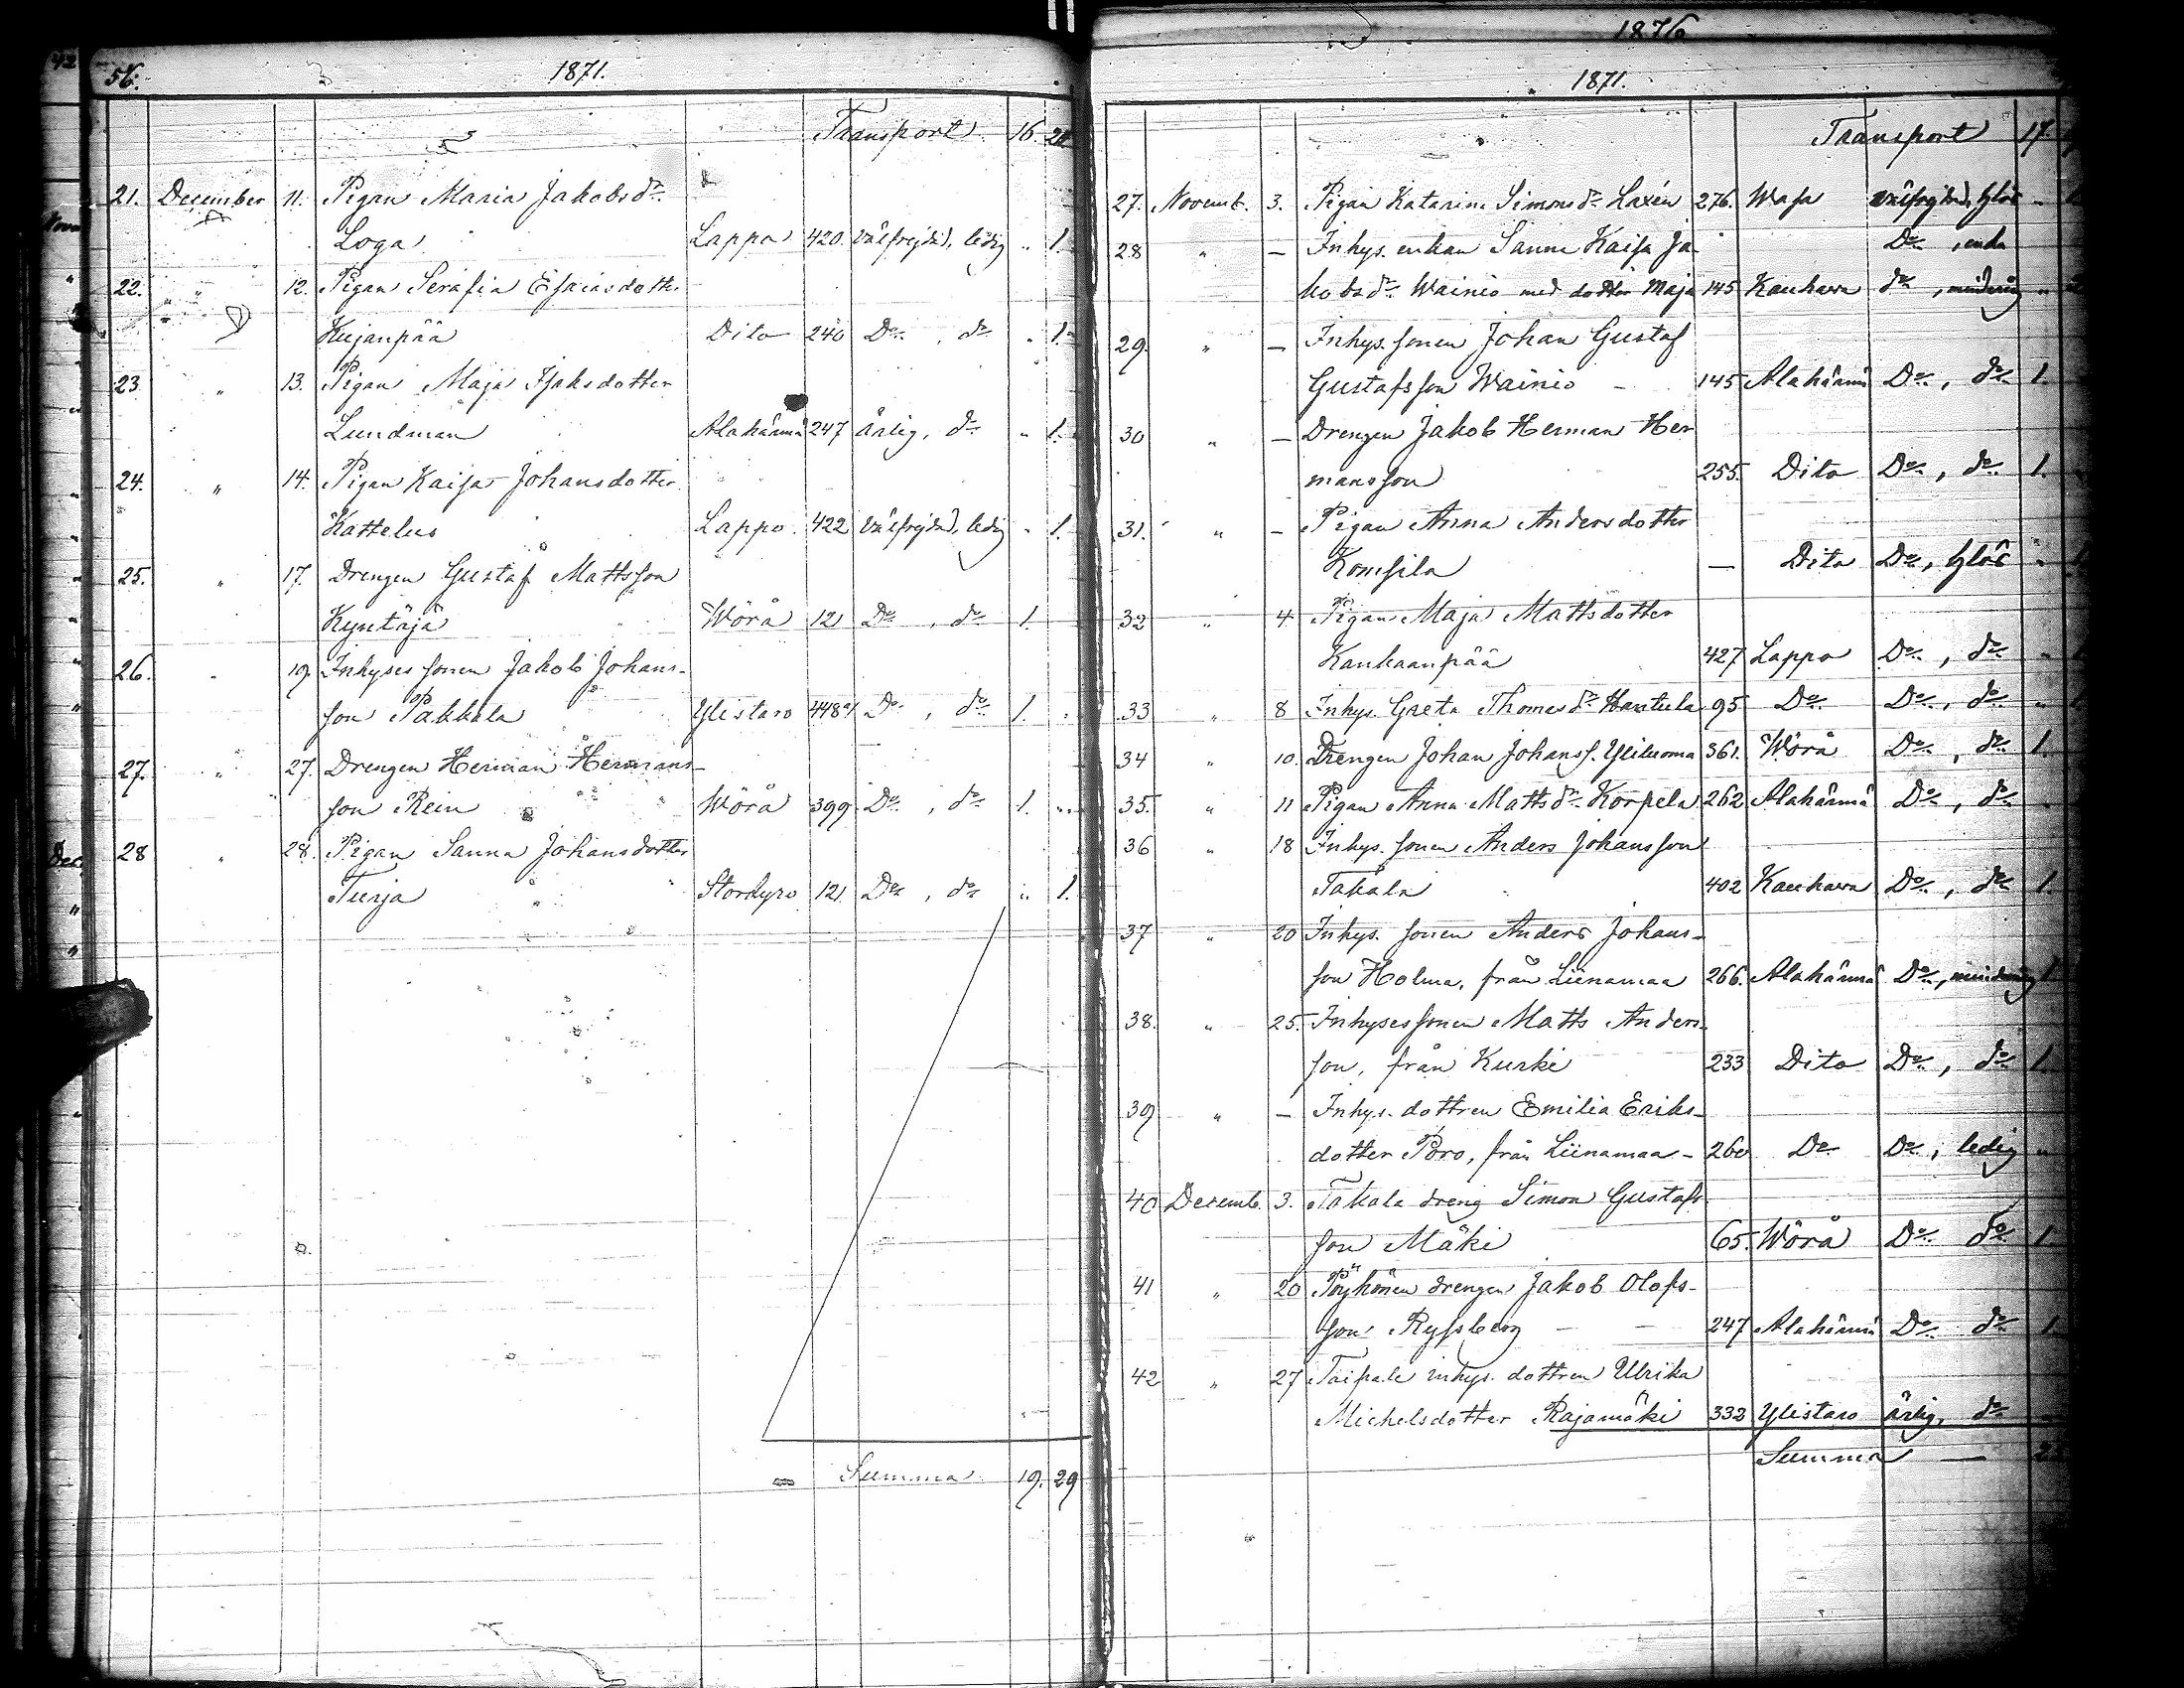 56. 1871.
Transport 16. 24
21. December 11. Pigan Maria Jakobsdr
Loga Lappo 420. välfrejdad, ledig " 1.
22. " 12. Pigan Serafia Esaiasdottr
Kujanpää Dito 240 Do, do " 1.
23. " 13. Pigan Maja Isaksdotter
Lundman Alahärmä 247 ärlig, do " 1.
24. " 14. Pigan Kaisa Johansdotter
Kattelus Lappo. 422 välfrejdad, ledig " 1.
25. " 17. Drengen Gustaf Mattsson
Kyntäjä Wörå 121 Do, do 1.
26. " 19. Inhyses sonen Jakob Johans-
son Pakkala Ylistaro 448 Do, do 1.
27. " 27. Drengen Herman Hermans-
son Rein Wörå 399 Do, do 1. "
28 " 28. Pigan Sanna Johansdotter
Turja Storkyro 121. Do, do " 1.
Summa 19. 29
1876
1871.
Transport 17.
27. Novemb. 3. Pigan Katarina Simonsdr Laxén 276. Wasa välfrejdad, hflös "
28 " — Inhys. enkan Sanna Kaisa Ja- Do, enka
kobsdr Wainio med dotter Maja 145 Kauhava do, minderårig "
29. " — Inhys. sonen Johan Gustaf
Gustafsson Wainio - 145 Alahärmä Do, do 1.
30 " — Drengen Jakob Herman Her
mansson 255. Dito Do, do 1.
31. " — Pigan Anna Andersdotter
Komsila — Dito Do, hflös "
32 " 4 Pigan Maja Mattsdotter
Kankaanpää 427 Lappo Do, do "
33 " 8 Inhys. Greta Thomasdr Hantula 95 Do Do, do "
34 " 10. Drengen Johan Johanss. Yliluoma 361. Wörå Do, do 1.
35. " 11 Pigan Anna Mattsdr Korpela 262 Alahärmä Do, do
36 " 18 Inhys. sonen Anders Johansson
Takala 402 Kauhava Do, do 1.
37 " 20 Inhys. sonen Anders Johans-
son Holma, från Liinamaa 266. Alahärmä Do, minderårig 1
38. " 25. Inhysessonen Matts Anders-
son, från Kurki 233 Dito Do, do 1.
39 " — Inhys. dottren Emilia Eriks-
dotter Poro, från Liinamaa - 260 Do Do, ledig "
40 Decemb. 3. Takala dreng Simon Gustafs-
son Mäki 65. Wörå Do do 1
41 " 20 Pöyhönen drengen Jakob Olofs-
son Ryssberg — — 247 Alahärmä Do do 1
42 " 27 Taipale inhys. dottren Ulrika
Michelsdotter Rajamäki 332 Ylistaro ärlig, do
Summa —